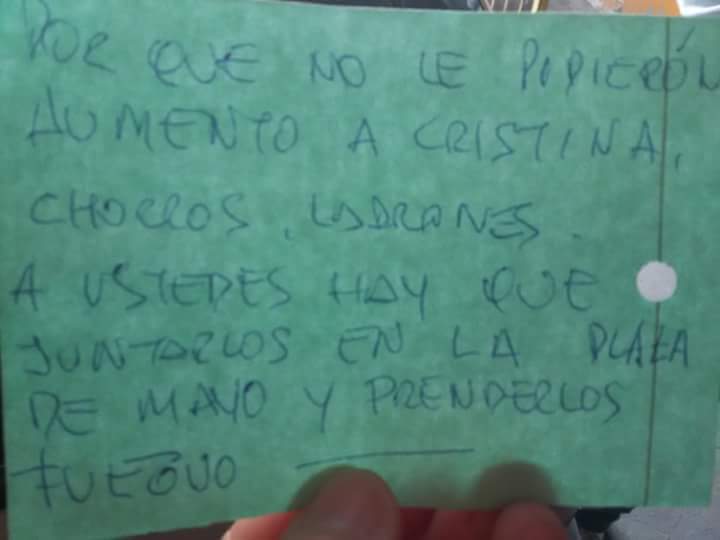 POR QUE NO LE PIDIERÓN
AUMENTO A CRISTINA,
CHORROS, LADRONES.
A USTEDES HAY QUE
JUNTARLOS EN LA PLAZA
DE MAYO Y PRENDERLOS
FUEGUO